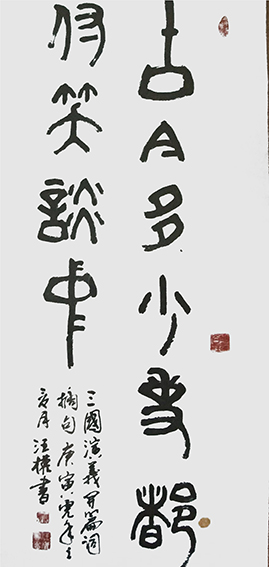 古今多少事都
付笑談中
三國演義開篇詞
摘句庚寅虎年之
夏月汪權書